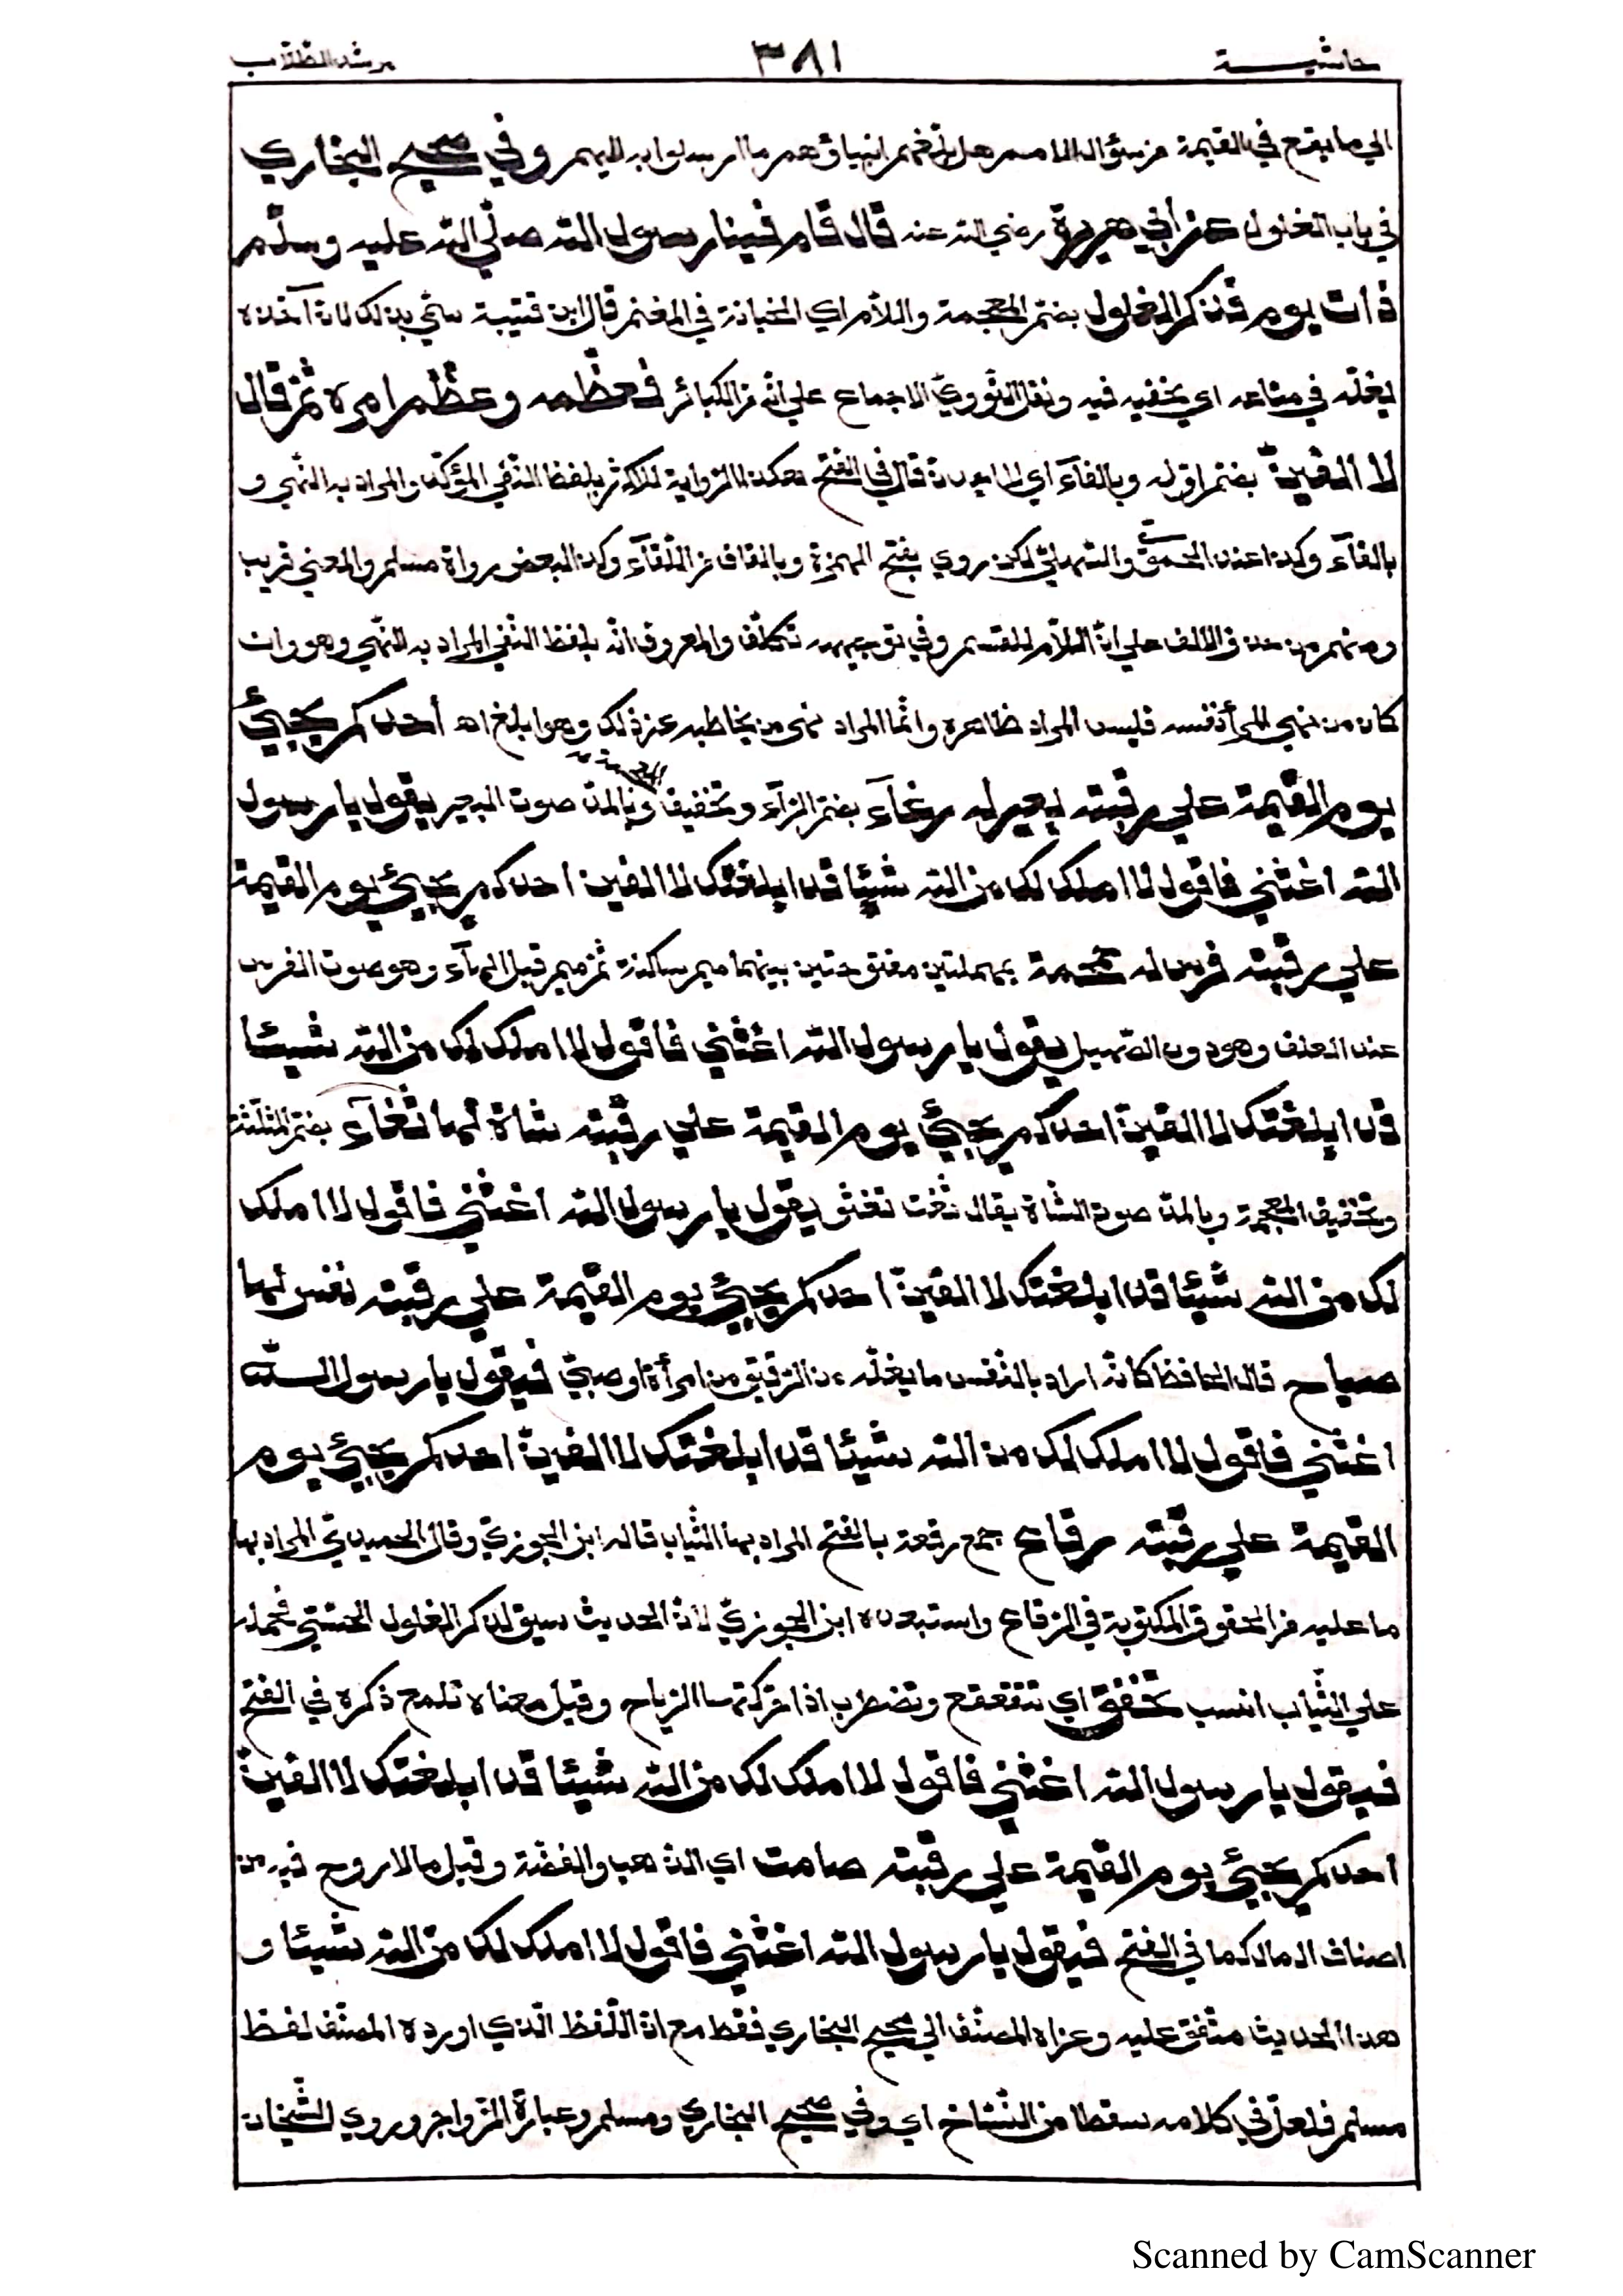 حاشيــــة ٣٨١ مرشد الطلاب
الي ما يقع في القيمة من سؤال الامم هل بلغهم انبياؤهم ما ارسلوا به اليهم وفي صحيح البخاري
في باب الغلول عن أبي هريرة رضي الله عنه قال قام فينا رسول الله صلي الله عليه وسلم
ذات يوم فذكر الغلول بضم المعجمة واللام اي الخيانة في المغنم قال ابن قتيبة سمي بذلك لان آخذه
يغله في متاعه اي يخفيه فيه ونقل النووي الاجماع علي انه من الكبائر فعظمه وعظم امره ثم قال
لا الفين بضم اوله وبالفاء اي لا اجد قال في الفتح هكذا الرواية للاكثر بلفظ النفي المؤكد والمراد به النهي و
بالفاء وكذا عند الحموي والمستملي لكن روي بفتح الهمزة وبالقاف من اللقاء وكذا لبعض رواة مسلم والمعني قريب
ومنهم من حذف الالف علي ان اللام للقسم وفي توجيهه تكلف والمعروف انه بلفظ النفي المراد به النهي وهو وان
كان من نهي المرأ نفسه فليس المراد ظاهره وانما المراد نهي من يخاطبه عن ذلك وهو ابلغ اه أحدكم يجيئ
يوم القيمة علي رقبته بعير له رغاء بضم الراء وتخفيف المعجمة وبالمد صوت البعير يقول يا رسول
الله اغثني فاقول لا املك لك من الله شيئا قد ابلغتك لا الفين احدكم يجيئ يوم القيمة
علي رقبته فرس له حمحمة بمهملتين مفتوحتين بينهما ميم ساكنة ثم ميم قبل الهاء وهو صوت الفرس
عند العلف وهو دون الصهيل يقول يا رسول الله اغثني فاقول لا املك لك من الله شيئا
قد ابلغتك لا الفين احدكم يجيئ يوم القيمة علي رقبته شاة لها ثغاء بضم المثلثة
وتخفيف المعجمة وبالمد صوت الشاة يقال ثغت تغثو يقول يا رسول الله اغثني فاقول لا املك
لك من الله شيئا قد ابلغتك لا الفين احدكم يجيئ يوم القيمة علي رقبته نفس لها
صياح قال الحافظ كانه اراد بالنفس ما يغله من الرقيق من امرأة او صبي فيقول يا رسول الله
اغثني فاقول لا املك لك من الله شيئا قد ابلغتك لا الفين احدكم يجيئ يوم
القيمة علي رقبته رقاع جمع رقعة بالفتح المراد بها الثياب قاله ابن الجوزي وقال الحميدي المراد بها
ما عليه من الحقوق المكتوبة في الرقاع واستبعده ابن الجوزي لان الحديث سيق لذكر الغلول الحسي فحمله
علي الثياب انسب تخفق اي تتقعقع وتضطرب اذا حركتها الرياح وقيل معناه تلمع ذكره في الفتح
فيقول يا رسول الله اغثني فاقول لا املك لك من الله شيئا قد ابلغتك لا الفين
أحدكم يجيئ يوم القيمة علي رقبته صامت اي الذهب والفضة وقيل ما لا روح فيه من
اصناف المال كما في الفتح فيقول يا رسول الله اغثني فاقول لا املك لك من الله شيئا و
هذا الحديث متفق عليه وعزاه المصنف الي صحيح البخاري فقط مع ان اللفظ الذي اورده المصنف لفظ
مسلم فلعل في كلامه سقطا من النساخ اي وفي صحيح البخاري ومسلم وعبارة الزواجر وروي الشيخان
Scanned by CamScanner